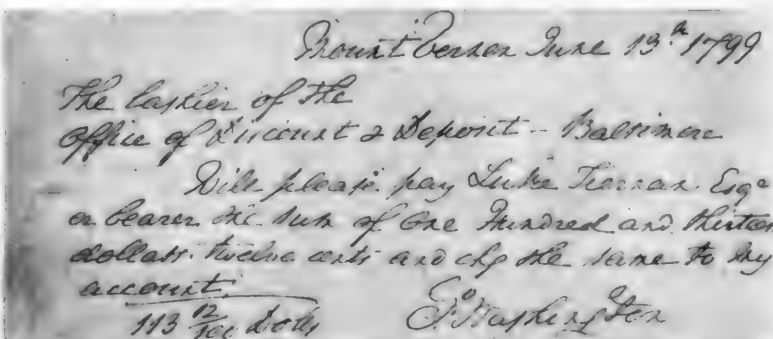 Mount Vernon June 13th 1799
The Cashier of the
Office of Discount & Deposit - Baltimore
Will please pay Luke Tiernan Esqr
or bearer the sum of One Hundred and thirteen
dollars twelve cents and chg the same to my
account.
113 12/100 Dolls Go Washington